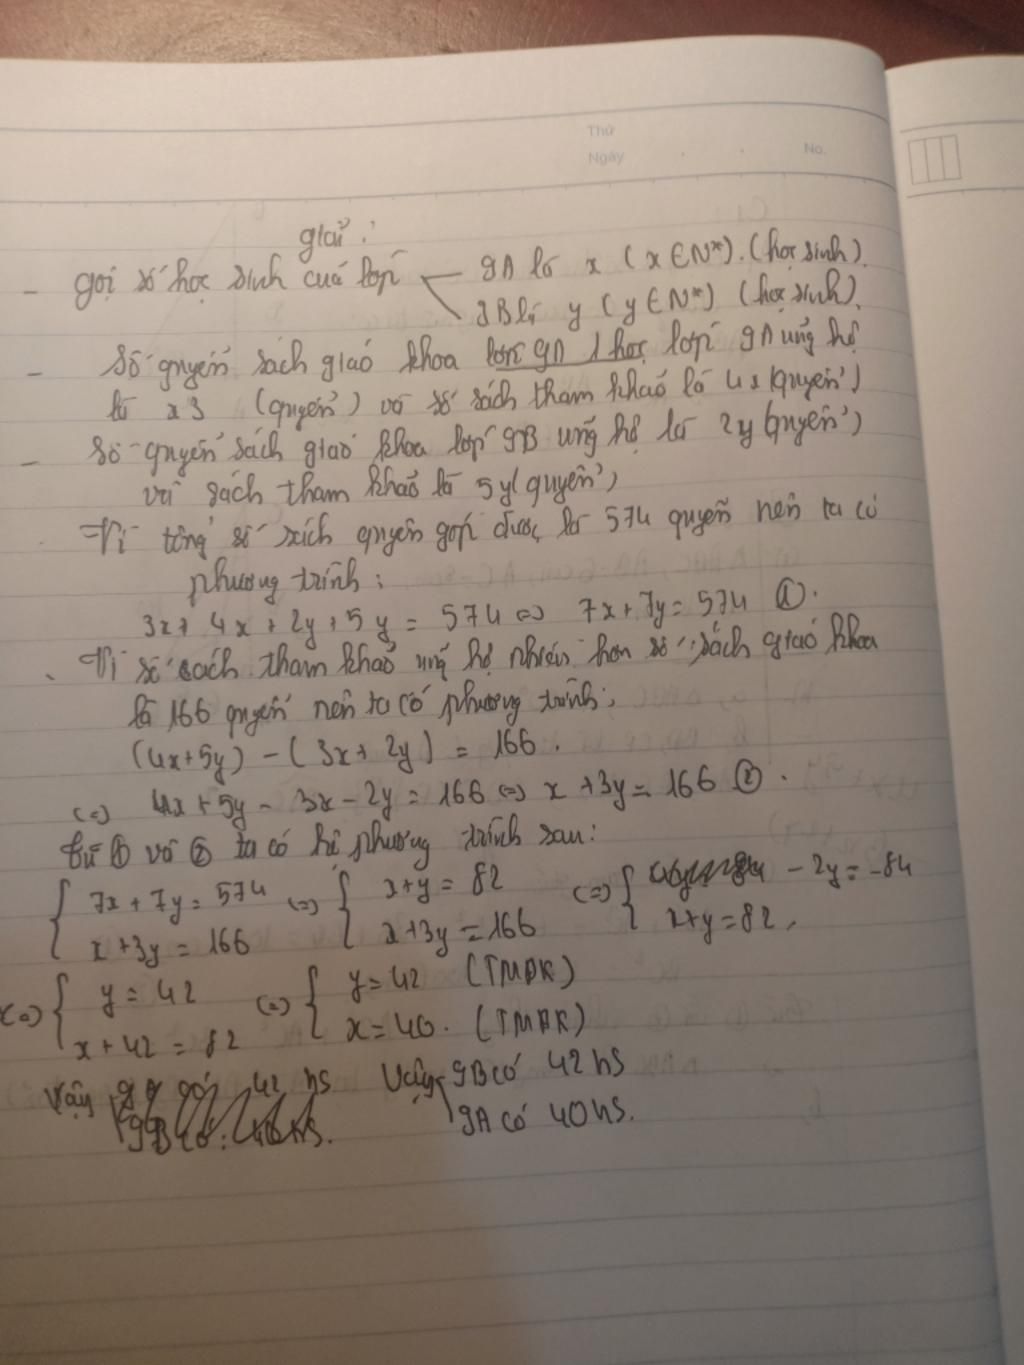 Thứ
Ngày No.
giải :
- gọi số học sinh của lớp 9A là x (x∈N*). (học sinh).
9B là y (y∈N*) (học sinh).
- Số quyển sách giáo khoa lớp 9A 1 học lớp 9A ủng hộ
là x3 (quyển) và số sách tham khảo là 4x (quyển)
- Số quyển sách giáo khoa lớp 9B ủng hộ là 2y (quyển)
và sách tham khảo là 5y (quyển)
- Vì tổng số sách quyên góp được là 574 quyển nên ta có
phương trình :
3x + 4x + 2y + 5y = 574 (=) 7x + 7y = 574 ①.
. Vì số sách tham khảo ủng hộ nhiều hơn số sách giáo khoa
là 166 quyển nên ta có phương trình :
(4x+5y) - (3x+2y) = 166.
(=) 4x + 5y - 3x - 2y = 166 (=) x + 3y = 166 ②.
từ ① và ② ta có hệ phương trình sau :
{ 7x + 7y = 574 (=) { x+y = 82 (=) { - 2y = -84
x + 3y = 166 x+3y = 166 x+y = 82.
(=) { y = 42 (=) { y = 42 (TMĐK)
x + 42 = 82 x = 40. (TMĐK)
Vậy 42 hs Vậy 9B có 42 hS
9A có 40 hs.